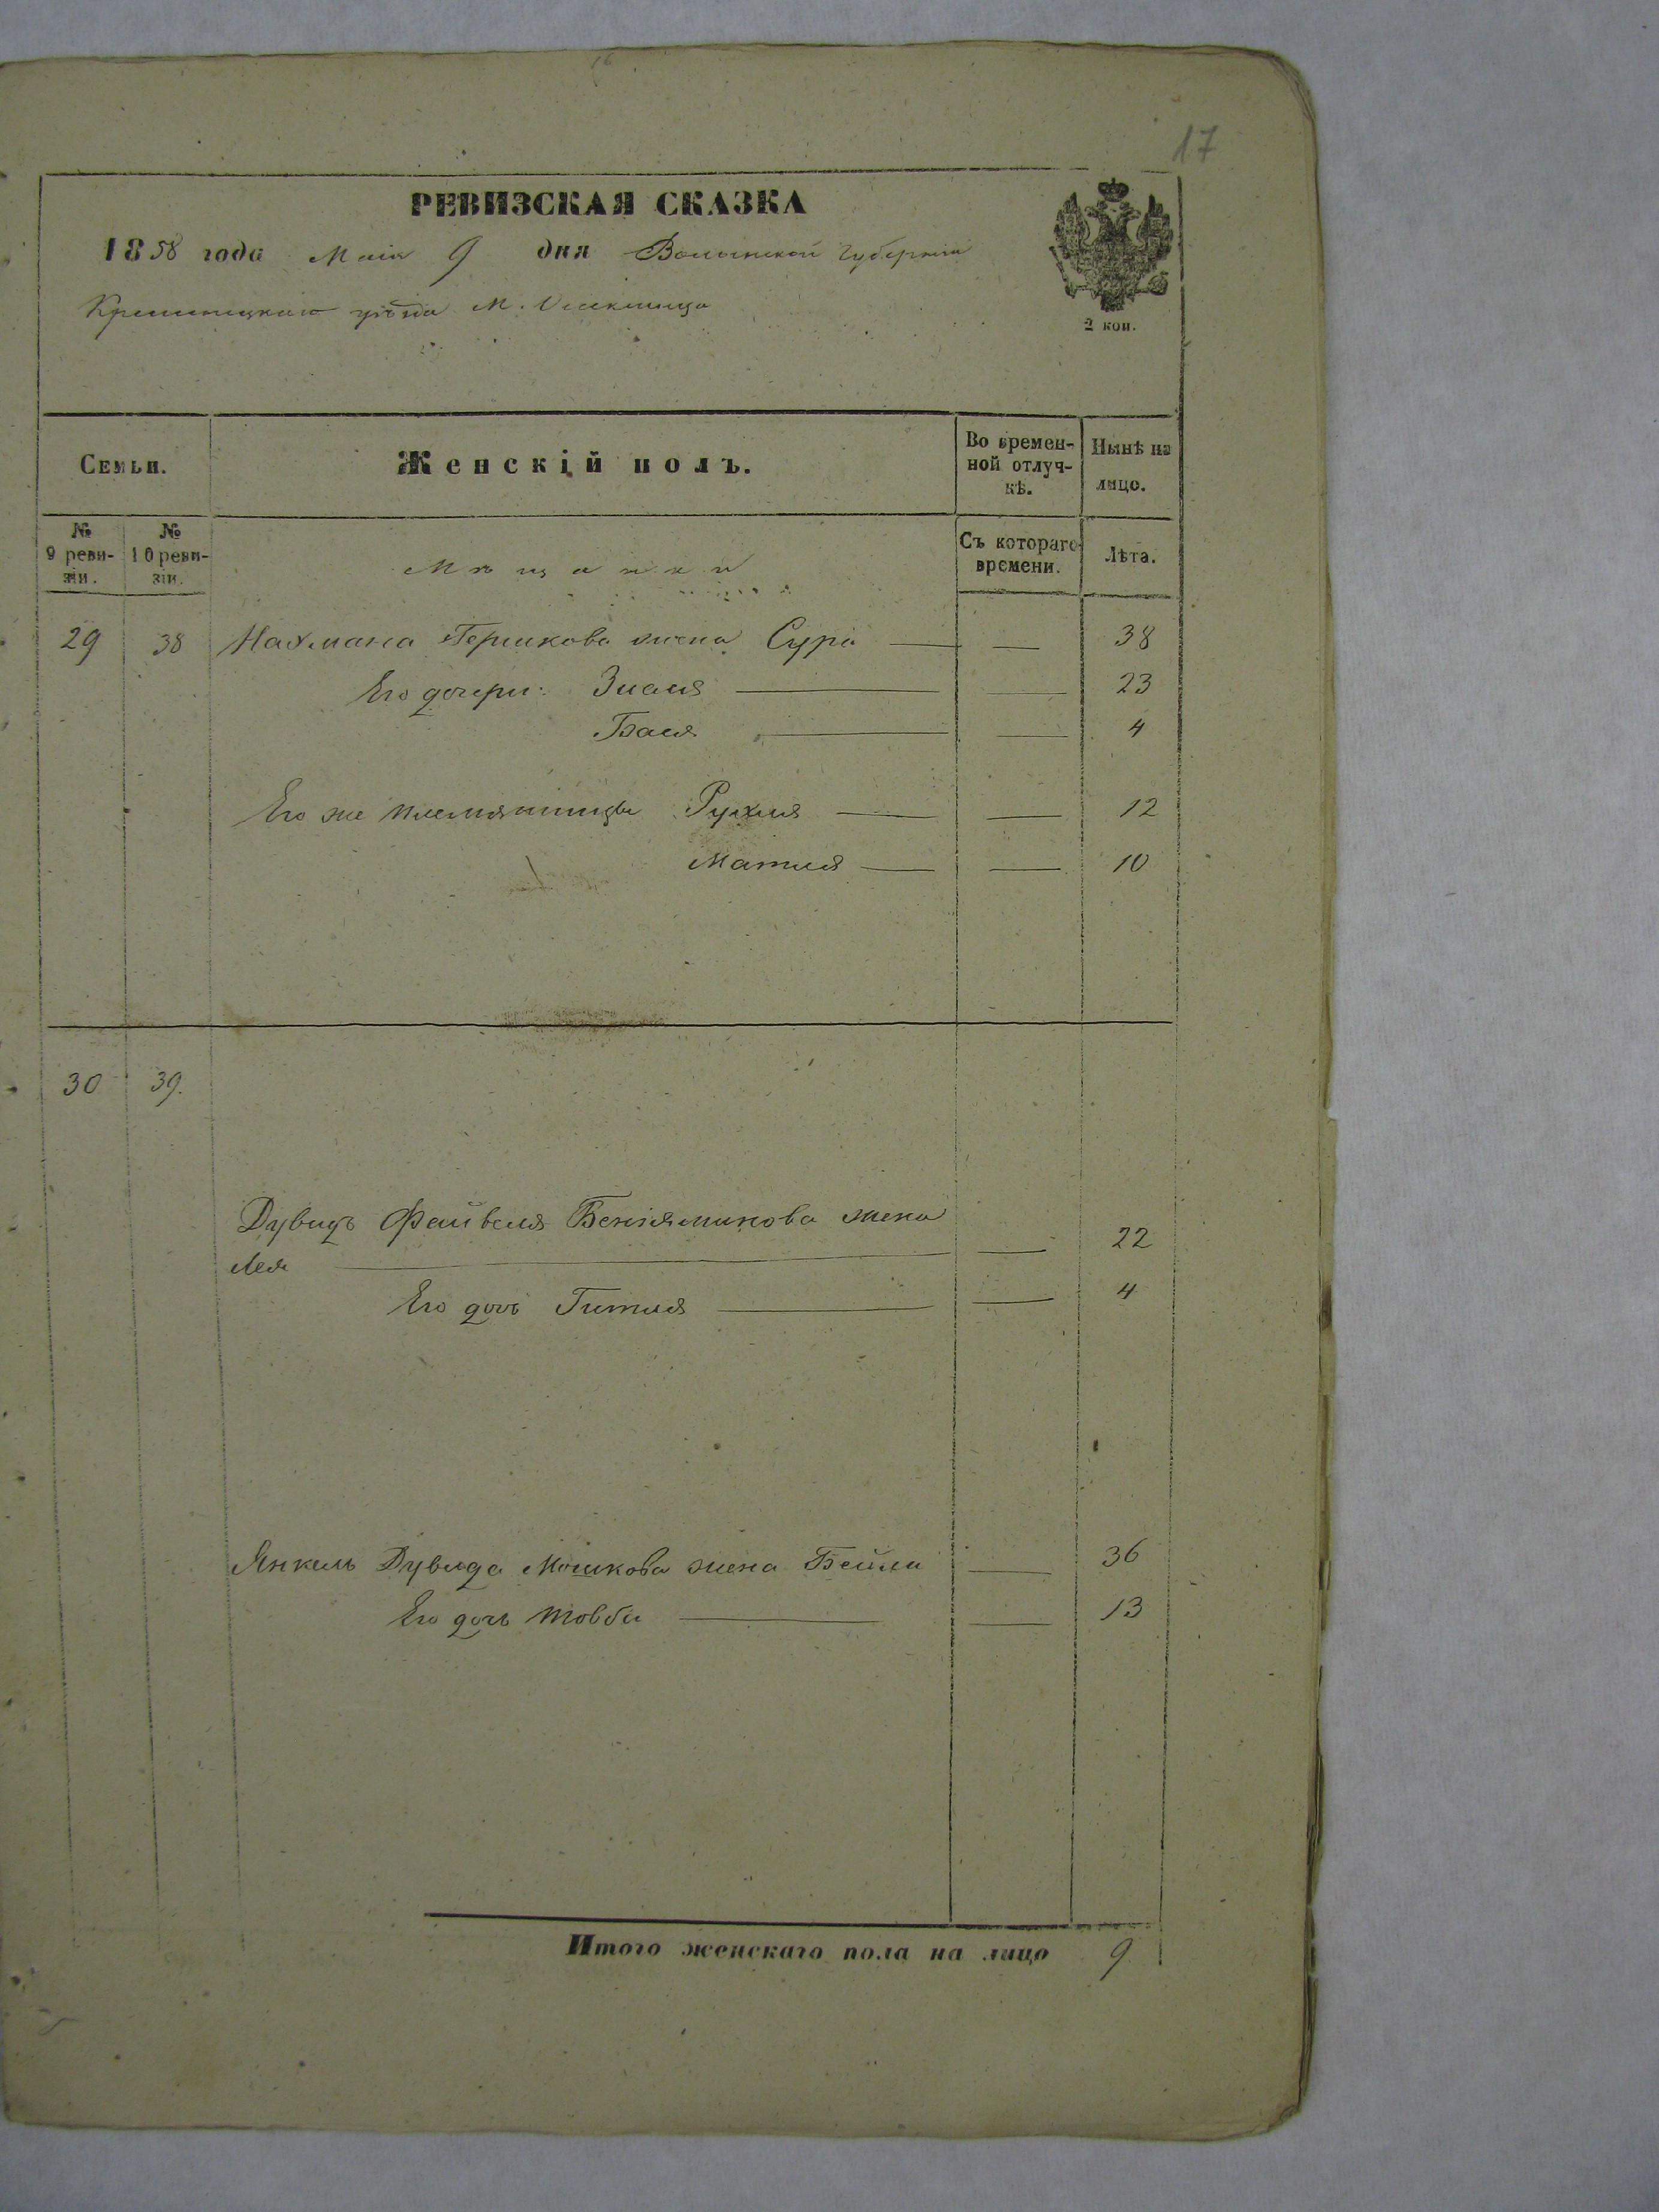 17
РЕВИЗСКАЯ СКАЗКА
1858 года Маія 9 дня Волынской губерніи
Кременецкаго уѣзда М.
2 коп.
Семьи.
Женскій полъ.
Во времен-
ной отлуч-
кѣ.
Нынѣ на
лицо.
№
9 реви-
зіи.
№
10 реви-
зіи.
Мѣщанки
Съ котораго
времени.
Лѣта.
29 38 Нахмана Гершкова жена Сура — — 38
Его дочери: Зисля — — 23
Бася — — 4
Его же племянницы Рухля — — 12
Матля — — 10
30 39.
Дувидъ Файвеля Беніяминова жена
Лея — — 22
Его дочь Гитля — — 4
Янкель Дувида Мошкова жена Бейла — 36
Его дочь Товба — — 13
Итого женскаго пола на лицо 9